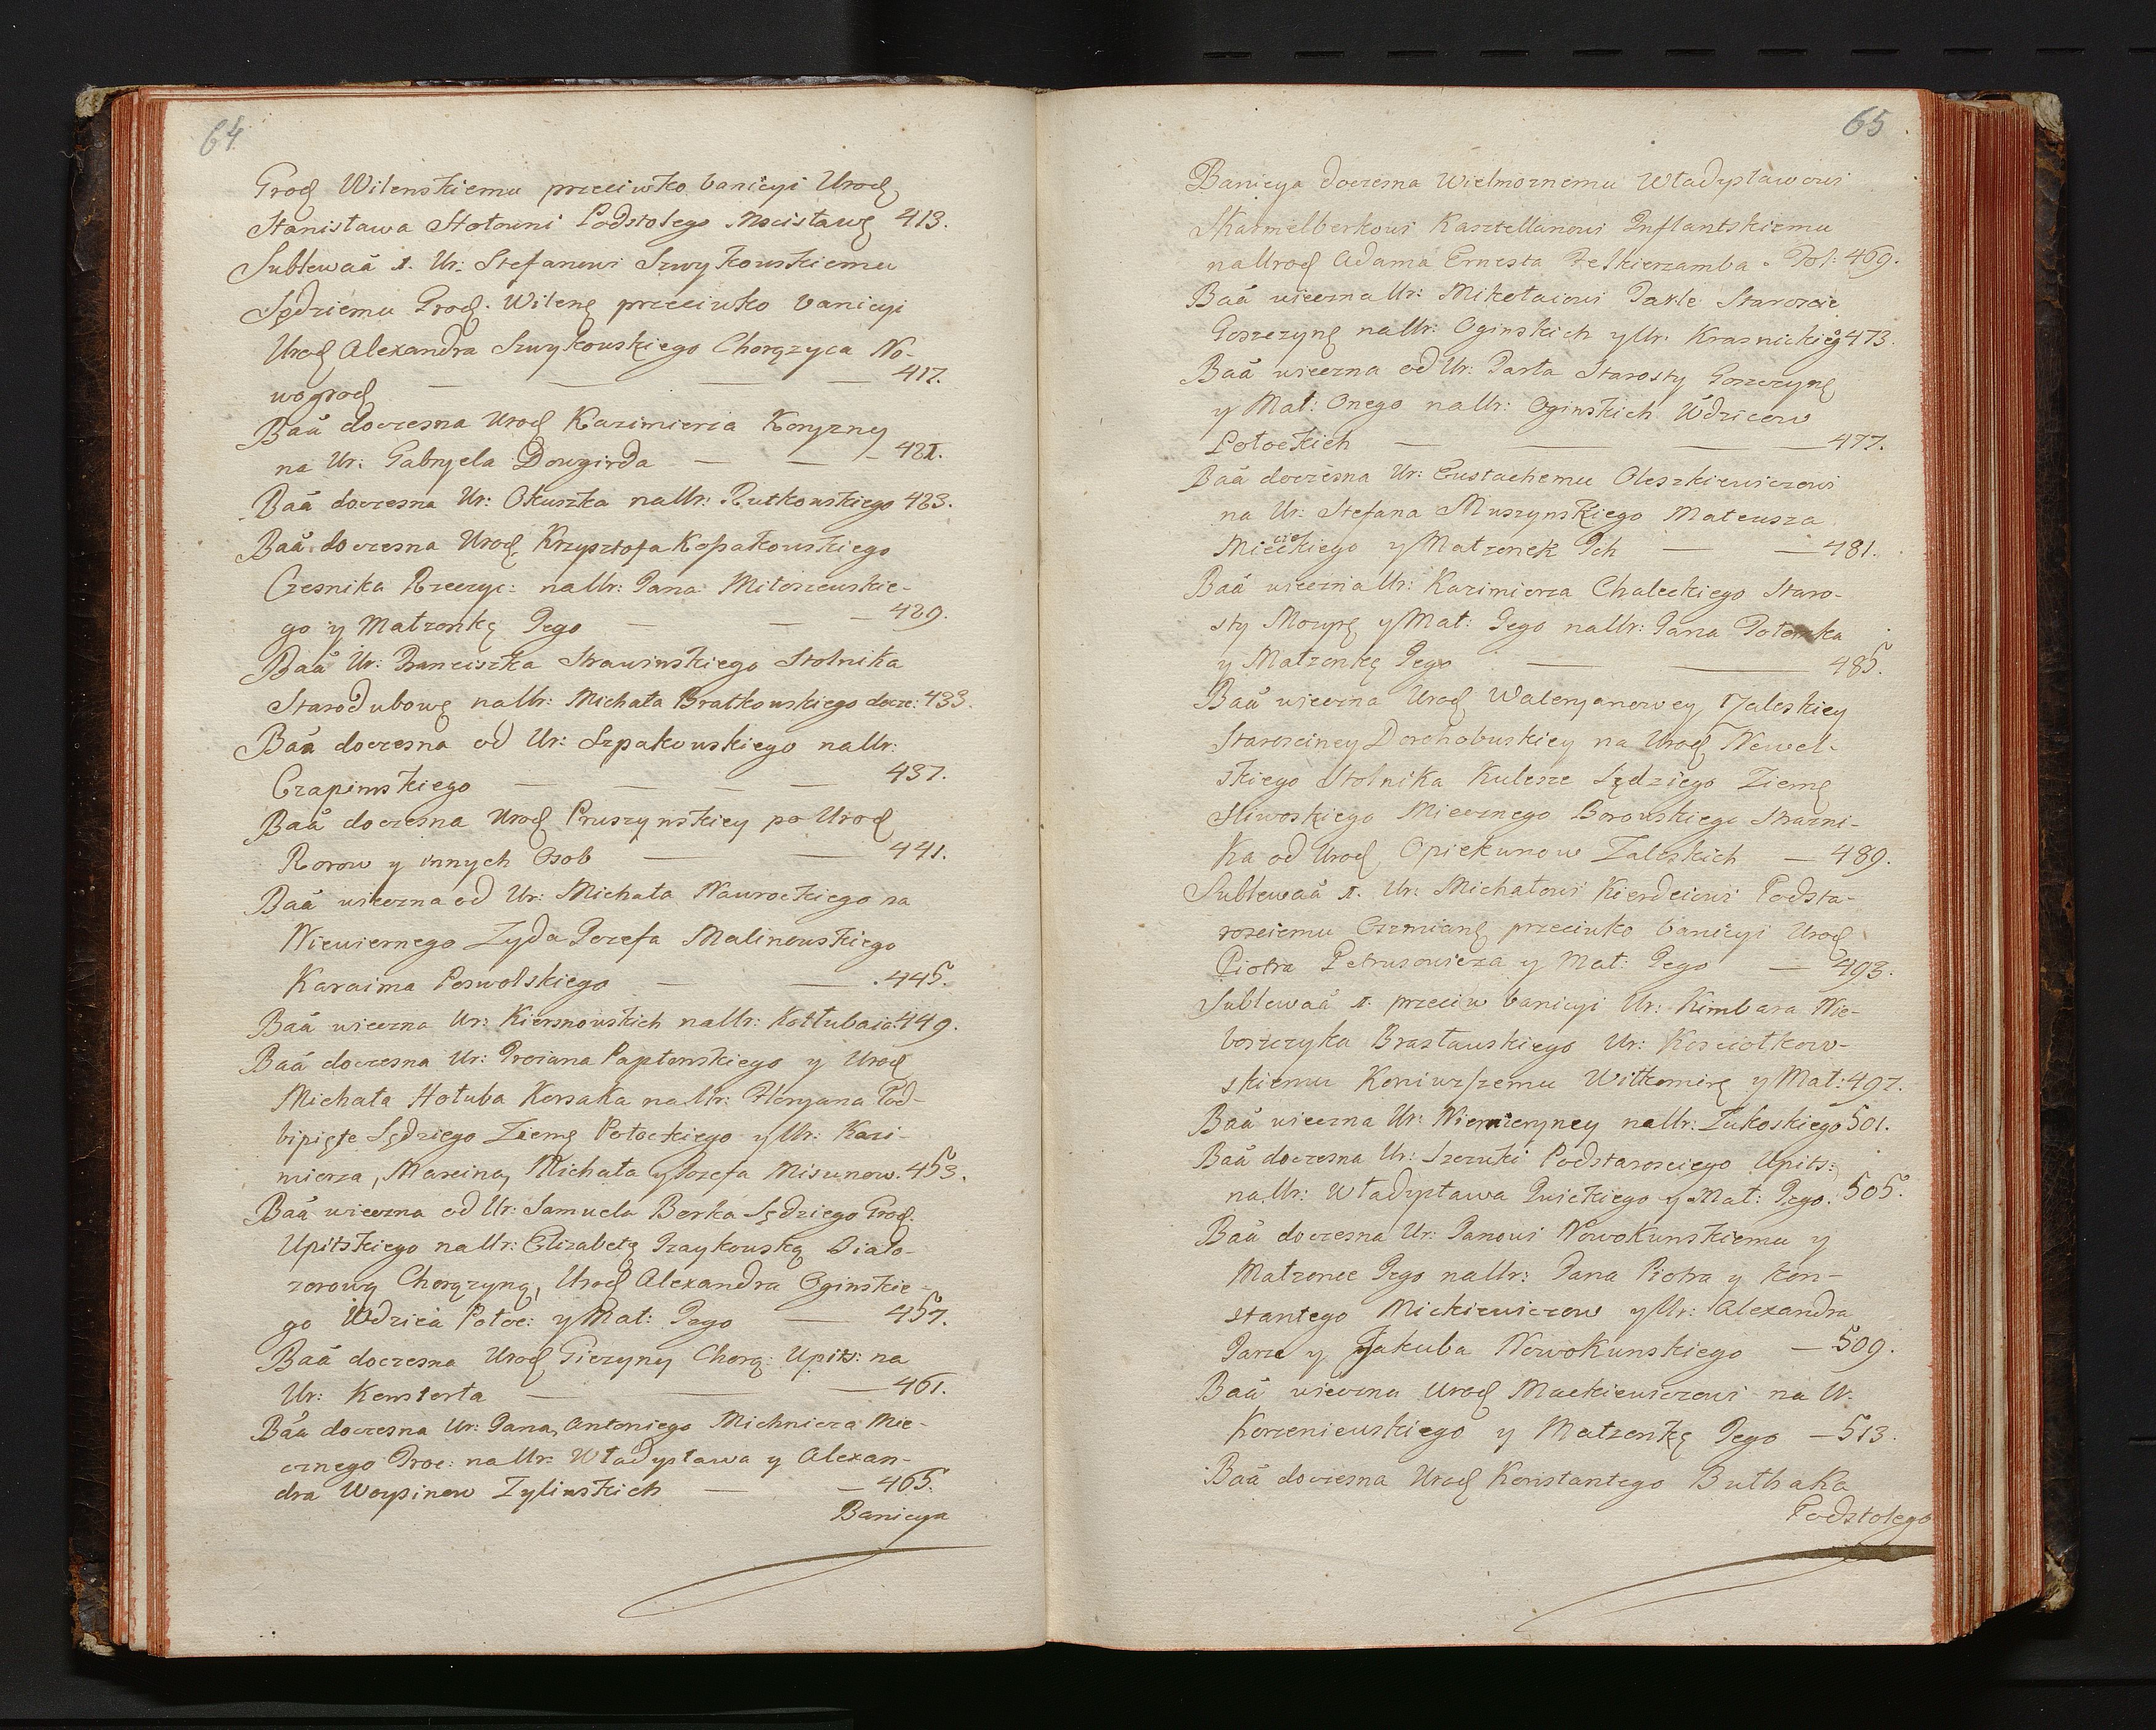 64
Grod Wilenskiemu przeciwko banicyi Urod
Stanisława Hołowni Podstolego Mscisław 413.
Sublewaã 1. Ur: Stefanowi Szwykowskiemu
Sędziemu Grod. Wileñ przeciwko banicyi
Urod Alexandra Szwykowskiego Chorązyca No-
wogrod — — — — 417.
Baã doczesna Urod Kazimierza Koryzny
na Ur: Gabryela Dowgirda — — — 421.
Baã doczesna Ur: Okuszka na Ur: Rutkowskiego 423.
Baã doczesna Urod Krzysztofa Kopakowskiego
Czesnika Rzeczyc: na Ur: Jana Miłoszewskie-
go y Małzonkę Jego — — — 429.
Baã Ur: Franciszka Strawinskiego Stolnika
Starodubowę na Ur: Michała Bratkowskiego docze: 433.
Baã doczesna od Ur: Szpakowskiego na Ur:
Czapinskiego — — — — 437.
Baã doczesna Urod Pruszynskiey po Urod
Rorow y innych Osob — — 441.
Baã wieczna od Ur: Michała Nawrockiego na
Niewiernego Zyda Jozefa Malinowskiego
Karaima Poswolskiego — — . 445.
Baã wieczna Ur: Kiersnowskich na Ur: Kołłubaia: 449.
Baã doczesna Ur: Troiana Paplonskiego y Urod
Michała Hołuba Korsaka na Ur: Floryana Pod-
bipięte Sędziego Ziemę Połockiego y Ur: Kazi-
mierza, Marcina, Michała y Jozefa Misunow. 453.
Baã wieczna od Ur: Samuela Borka Sędziego Grod.
Upitskiego na Ur: Elizabetę Izaykowską Biało-
zorową Chorązyną, Urod Alexandra Oginskie-
go Wdzica Połoc: y Mat: Jego — 457.
Baã doczesna Urod Giezyny Chorą: Upits: na
Ur: Komstorta — — — 461.
Baã doczesna Ur: Jana, Antoniego Michnicza Mie-
cznego Proc: na Ur: Władysława y Alexan-
dra Woysinow Zylinskich — — 465.
Banicya
65
Banicya doczesna Wielmoznemu Władysławowi
Skarmelberkowi Kasztellanowi Inflantskiemu
na Urod Adama Ernesta Felkierzamba. Fol: 469.
Baã wieczna Ur: Mikołaiowi Jaxle Staroscie
Goszczynę na Ur: Oginskich y Ur: Krasnickieg 473.
Baã wieczna od Ur: Jaxla Starosty Goszczynę
y Mat: Onego na Ur: Oginskich Wdzicow
Połockich — — — 477.
Baã doczesna Ur: Eustachemu Oleszkiewiczowi
na Ur: Stefana Muszynskiego Mateusza
Mieckiego y Małzonek Ich — — 481.
Baã wieczna Ur: Kazimierza Chaleckiego Staro-
sty Mozyrę y Mat: Jego na Ur: Jana Potomka
y Małzonkę Jego — — 485.
Baã wieczna Urod Waleryanowey Zaleskiey
Staroscimey Dorohobuskiey na Urod Newel-
skiego Stolnika Kulesze Sędziego Ziemę
Sliwoskiego Miecznego Borowskiego Strazni-
ka od Urod Opiekunow Zaleskich — 489.
Sublewaã 1. Ur: Michałowi Kierdeiowi Podsta-
rosciemu Oszmianę przeciwko banicyi Urod
Piotra Petrusowicza y Mat: Jego — 493.
Sublewaã 1. przeciw banicyi Ur: Kimbara Nie-
boszczyka Brasławskiego Ur: Kosciołkow-
skiemu Koniuszemu Wiłkomirę y Mat: 497.
Baã wieczna Ur: Niemierzyney na Ur: Zukoskiego 501.
Baã doczesna Ur: Szczuki Podstarosciego Upits:
na Ur: Władysława Puickiego y Mat: Jego. 505.
Baã doczesna Ur: Janowi Nowokunskiemu y
Małzonce Jego na Ur: Jana Piotra y Kon-
stantego Mickiewiczow y Ur: Alexandra
Jarze y Jakuba Nowokunskiego — 509.
Baã wieczna Urod Mackiewiczowi na U:
Korzeniewskiego y Małzonkę Jego — 513.
Baã doczesna Urod Konstantego Buthaka
Podstolego